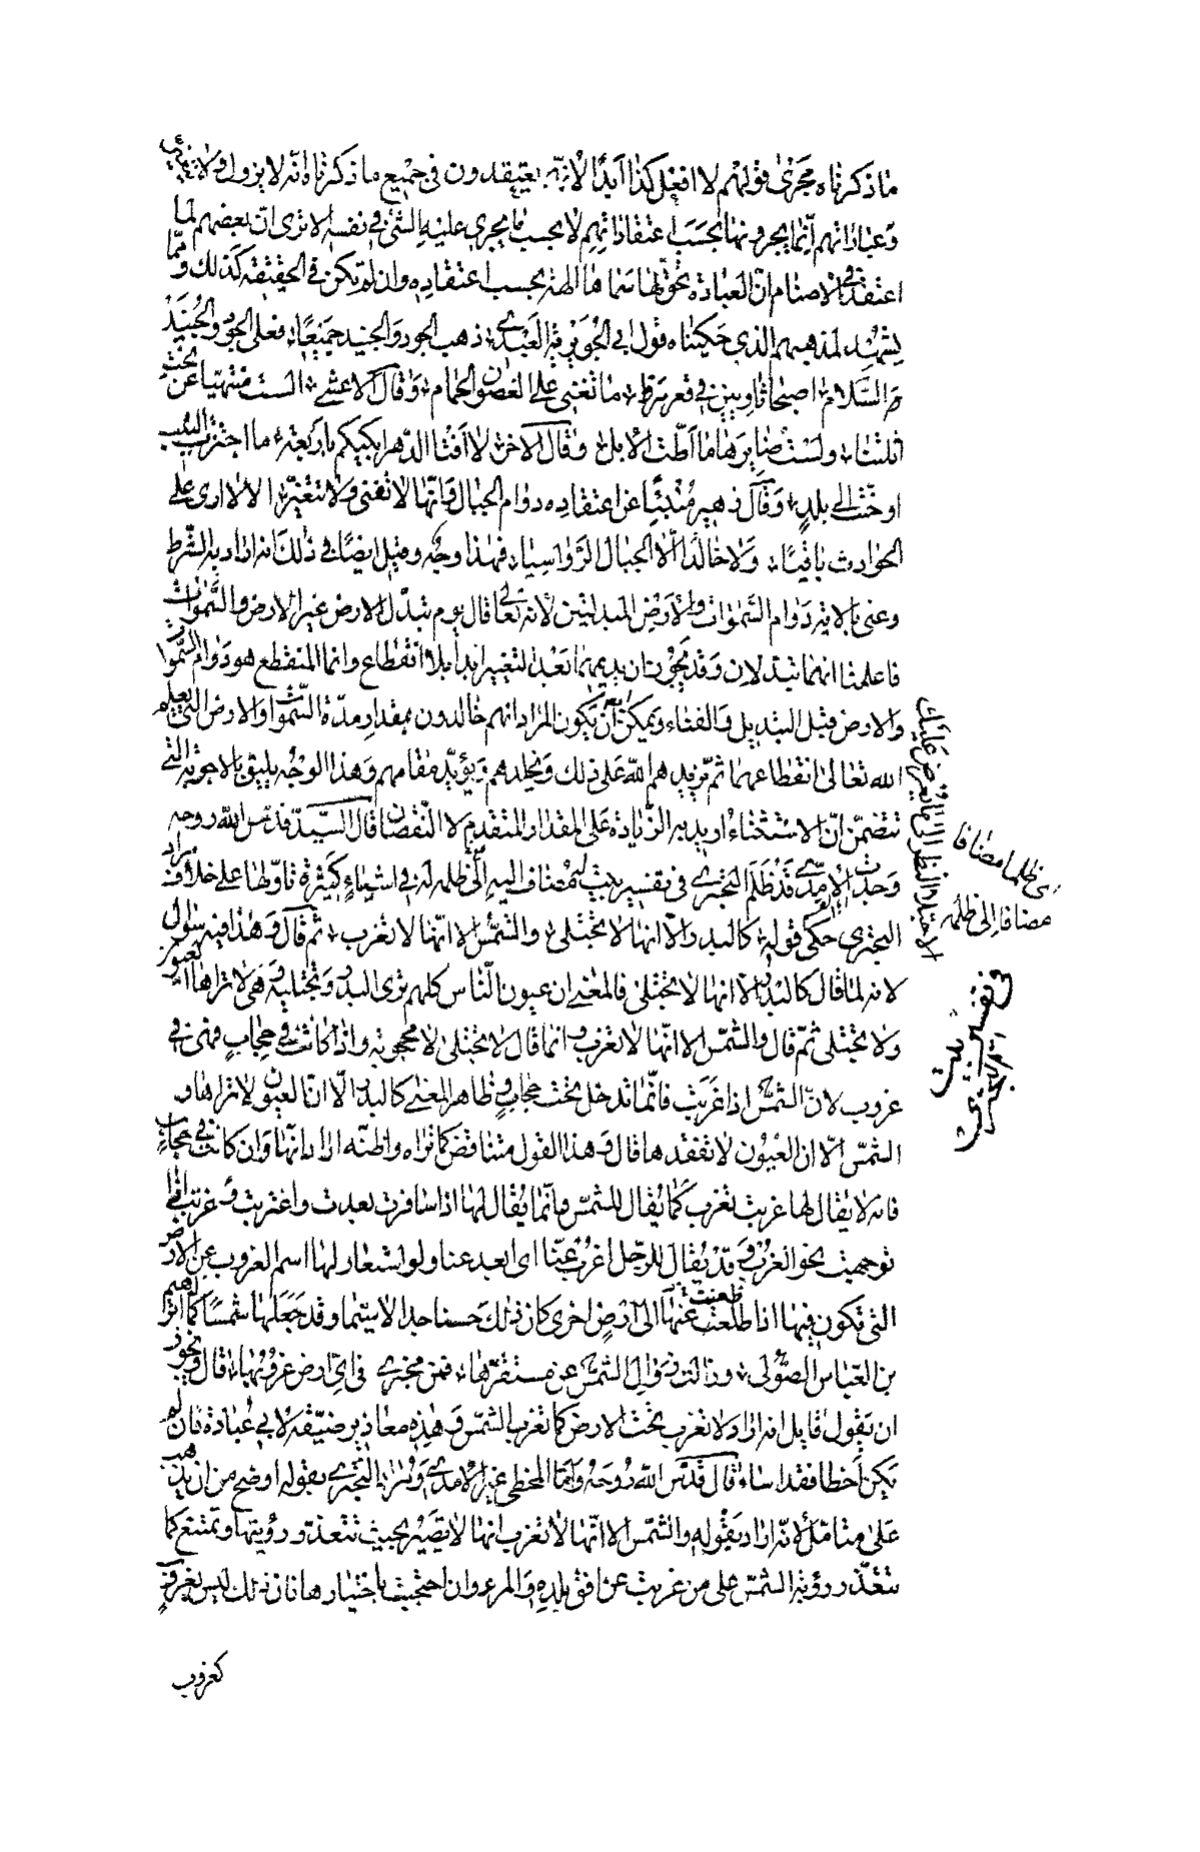 ما ذكرناه مجرى قولهم لا افعل كذا ابدا لانهم يعتقدون فى جميع ما ذكرناه انه لا يزول ولا يتغير
وعباداتهم انما يجرونها بحسب اعتقاداتهم لا بحسب ما يجرى عليه الشئ فى نفسه الا ترى ان بعضهم لما
اعتقد فى الاصنام ان العبادة تحق لها سماها الهة بحسب اعتقاده وان لم تكن فى الحقيقة كذلك ومما
يشهد لمذهبهم الذى حكيناه قول ابى الجويرية العبدى ذهب الجود والجنيد جميعا فعلى الجود والجنيد
السلام اصبحا ثاويين فى قعر مرت ما تغنى على الغصون الحمام وقال الاعشى الست منتهيا عن نحت
اثلتنا ولست ضايرها ما اطت الابل وقال الاخر لا افتا الدهر ابكيكم باربعة ما اجترت النيب
او حنت الى بلد وقال زهير منبئا عن اعتقاده دوام الجبال وانها لا تفنى ولا تتغير الا لا ارى على
الحوادث باقيا ولا خالدا الا الجبال الرواسيا فهذا وجه وقيل ايضا فى ذلك انه اراد به الشرط
وعنى بالاية دوام السموات والارض المبدلتين لانه تعالى قال يوم تبدل الارض غير الارض والسموات
فاعلمنا انهما تبدلان وقد يجوز ان يديمهما بعد التغيير ابدا بلا انقطاع وانما المنقطع هو دوام السموات
والارض قبل التبديل والفناء ويمكن ان يكون المراد انهم خالدون بمقدار مدة السموات والارض التى يعلم
الله تعالى انقطاعهما ثم يزيدهم الله على ذلك ويخلدهم ويؤيد مقامهم وهذا الوجه يليق بالاجوبة التى
تتضمن ان الاستثناء اريد به الزيادة على المقدار المتقدم لا النقصان قال السيد قدس الله روحه
وجدت الامدى قد ظلم البحترى فى تفسير بيت له مضاف اليه الى ظلمه له فى اشياء كثيرة تاولها على خلاف مراد
البحترى حكى قوله كالبدر الا انها لا تجتلى والشمس الا انها لا تغرب ثم قال وهذا فيه سؤال
لانه لما قال كالبدر الا انها لا تجتلى فالمعنى ان عيون الناس كلهم ترى البدر وتجتليه وهى لا تراها العيون
ولا تجتلى ثم قال والشمس الا انها لا تغرب وانما قال لا تجتلى لانها محجوبة واذا كانت فى حجاب فهى فى
غروب لان الشمس اذا غربت فانما تدخل تحت حجاب وظاهر المعنى كالبدر الا ان العيون لا تراها و
الشمس الا ان العيون لا تفقدها قال وهذا القول متناقض كما تراه واظنه اراد انها وان كانت فى حجاب
فانه لا يقال لها غربت تغرب كما يقال للشمس وانما يقال لها اذا سافرت بعدت واغتربت وغربت اذا
توجهت نحو الغرب وقد يقال للرجل اغرب عنا اى ابعد عنا ولو استعار لها اسم الغروب عن الارض
التى تكون فيها اذا ظعنت عنها الى ارض اخرى كان ذلك حسنا جدا لا سيما وقد جعلها شمسا كما قال ابراهيم
بن العباس الصولى وزالت زوال الشمس عن مستقرها فمن مخبرى فى اى ارض غروبها قال ويجوز
ان يقول قايل انه اراد لا تغرب تحت الارض كما تغرب الشمس وهذه معاذير ضيقة لابى عبادة فان لم
يكن اخطا فقد اساء قال قدس الله روحه وانما المخطى غير الامدى ومراد البحترى بقوله اوضح من ان يذهب
على متامل لانه اراد بقوله والشمس الا انها لا تغرب انها لا تصير بحيث تتعذر رؤيتها وتمتنع كما
تتعذر رؤية الشمس على من غربت عن افق بلده والمراة وان احتجبت باختيارها فان ذلك ليس بغروب
كغروب
فى تفسير بيت
البحترى
مضافا الى ظلمه